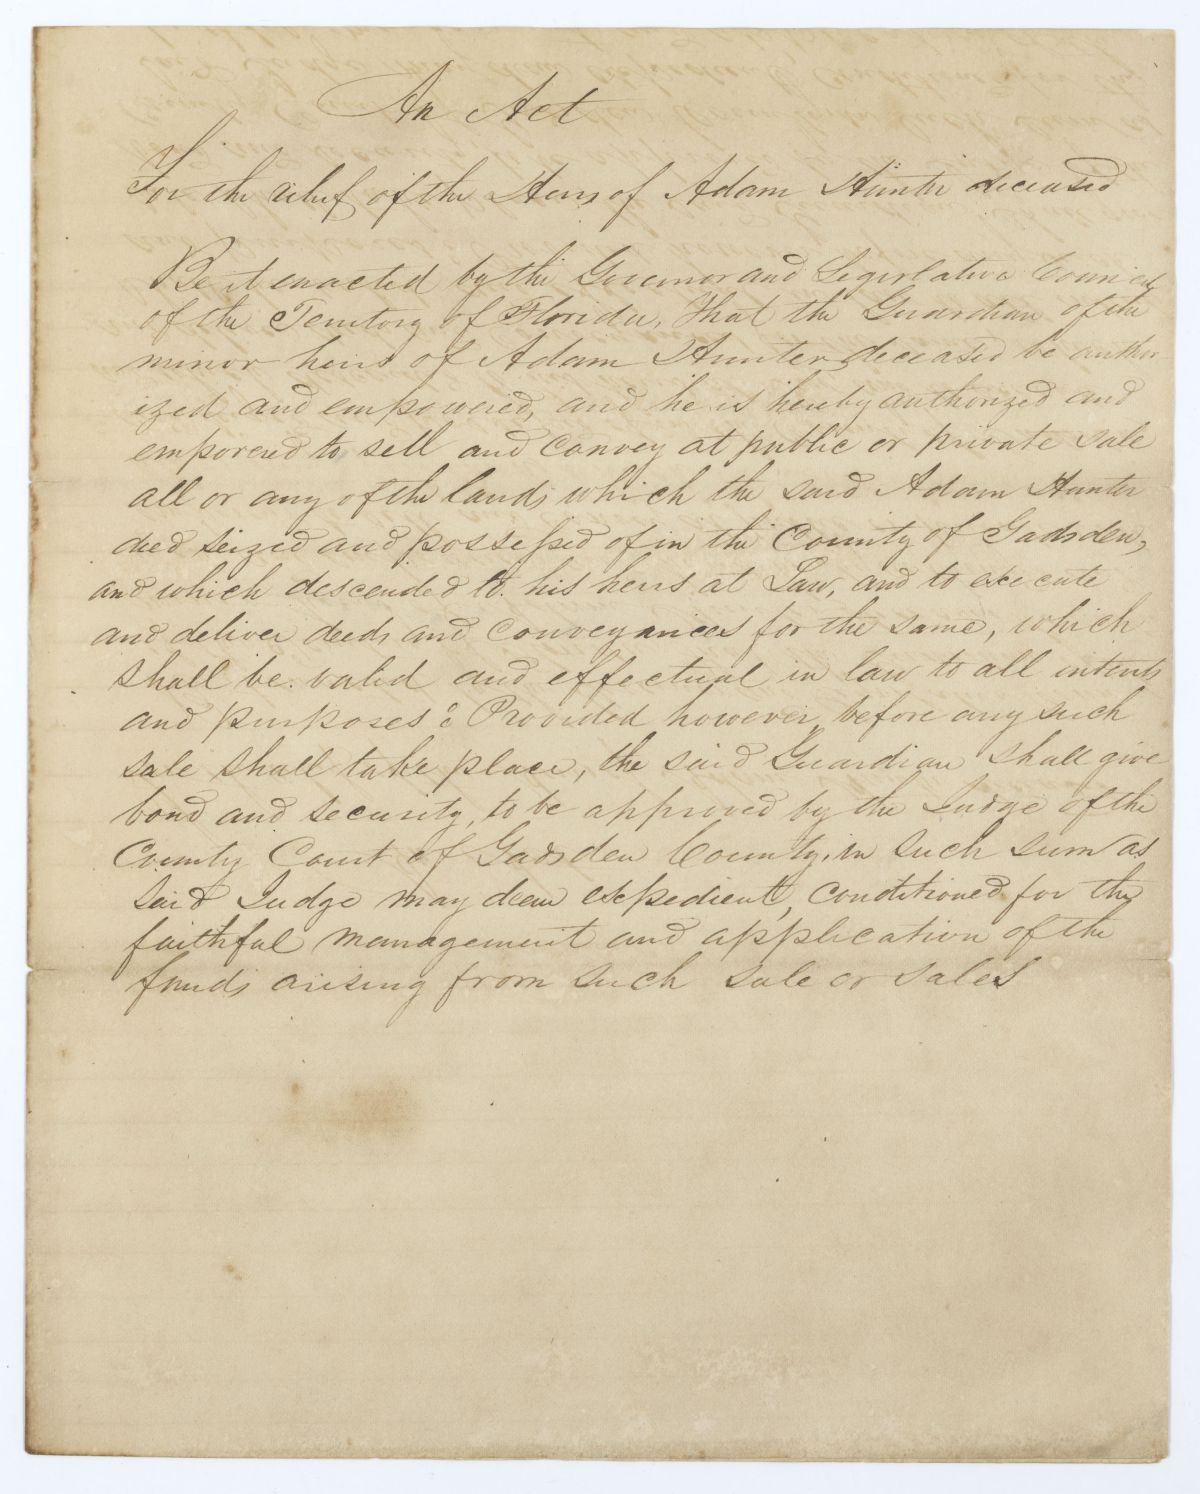 An Act
For the relief of the Heirs of Adam Hunter deceased
Be it enacted by the Governor and Legislative Council
of the Territory of Florida, That the Guardian of the
minor heirs of Adam Hunter deceased be author
ized and empowered, and he is hereby authorized and
emporered to sell and convey at public or private sale
all or any of the lands which the said Adam Hunter
died seized and possessed of in the County of Gadsden,
and which descended to his heirs at Law, and to execute
and deliver deeds and conveyances for the same, which
shall be valid and effectual in law to all intents
and purposes: Provided however, before any such
sale shall take place, the said Guardian shall give
bond and security, to be approved by the Judge of the
County Court of Gadsden County, in such sum as
said Judge may deem expedient, conditioned for the
faithful management and application of the
funds arising from such sale or sales